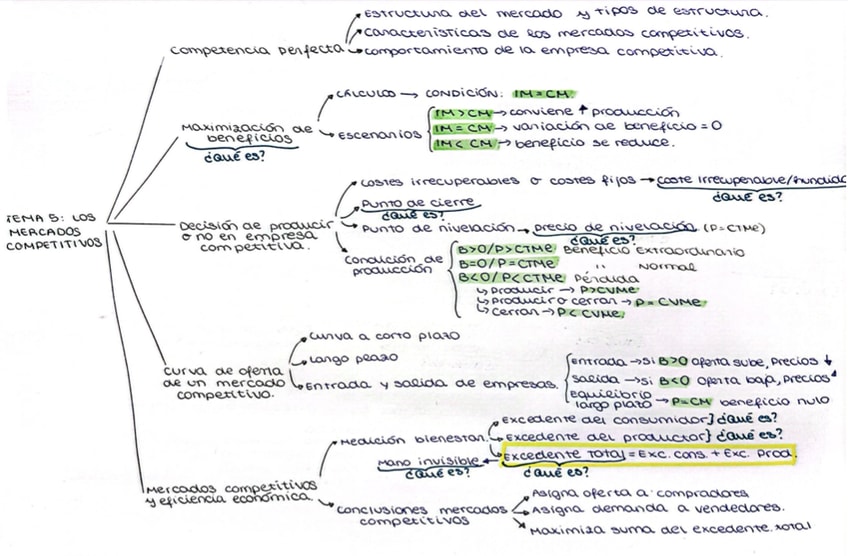 Estructura del mercado y tipos de estructura.
Características de los mercados competitivos.
Competencia perfecta
Comportamiento de la empresa competitiva.
CÁLCULO → CONDICIÓN: IM=CM.
Maximización de beneficios
¿Qué es?
ESCENARIOS
IM>CM → conviene ↑ producción
IM=CM → variación de beneficio = 0
IM<CM → beneficio se reduce.
TEMA 5: LOS
MERCADOS
COMPETITIVOS
Decisión de producir
o no en empresa
competitiva.
Costes irrecuperables o costes fijos → coste irrecuperable/hundido
¿Qué es?
Punto de cierre
¿Qué es?
Punto de nivelación → precio de nivelación (P=CTMe)
¿Qué es?
Condición de
producción
B>0/P>CTMe Beneficio Extraordinario
B=0/P=CTMe " Normal
B<0/P<CTMe Pérdida
↳ Producir → P>CVMe
↳ Producir o cerrar → P=CVMe
↳ Cerrar → P<CVMe
Curva de oferta
de un mercado
competitivo.
Curva a corto plazo
Largo plazo
Entrada y salida de empresas.
Entrada → Si B>0 oferta sube, Precios ↓
Salida → Si B<0 oferta baja, Precios ↑
equilibrio
largo plazo → P=CM beneficio nulo
Mercados competitivos
y eficiencia económica.
Medición bienestar.
Excedente del consumidor] ¿Qué es?
Excedente del productor} ¿Qué es?
Excedente Total = Exc. cons. + Exc. Prod.
¿Qué es?
Mano invisible
¿Qué es?
Conclusiones mercados
competitivos
Asigna oferta a compradores
Asigna demanda a vendedores.
Maximiza suma del excedente total